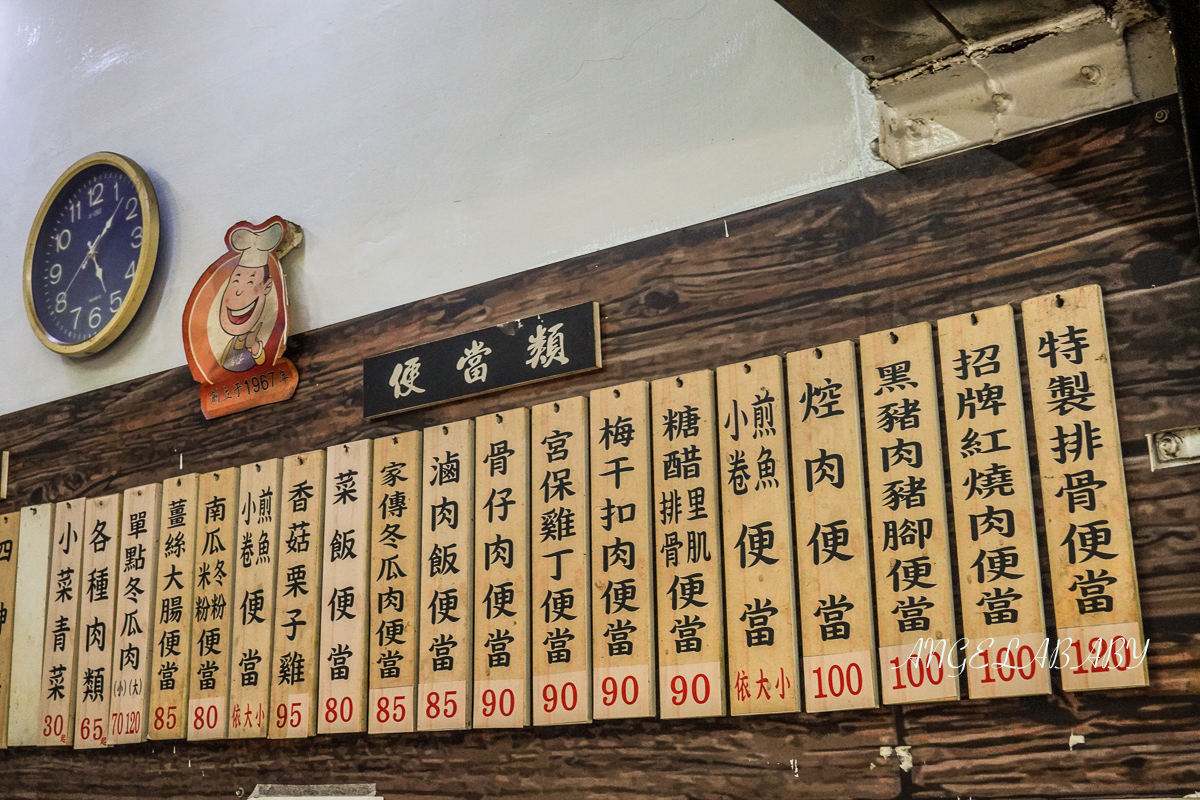 便當類
特製排骨便當
120
招牌紅燒肉便當
100
黑豬肉豬腳便當
100
焢肉便當
100
煎魚
小卷
便當
依大小
糖醋
里肌
排骨
便當
90
梅干扣肉便當
90
宮保雞丁便當
90
骨仔肉便當
90
滷肉飯便當
85
家傳冬瓜肉便當
85
菜飯便當
80
香菇栗子雞
95
煎魚
小卷
便當
依大小
南瓜
冬粉
米粉
便當
80
薑絲大腸便當
85
單點冬瓜肉
(小)(大)
70 120
各種肉類
65起
小菜青菜
30起
四神
創立於1967年
12
1
2
3
4
5
6
7
8
9
10
11
ANGELABABY